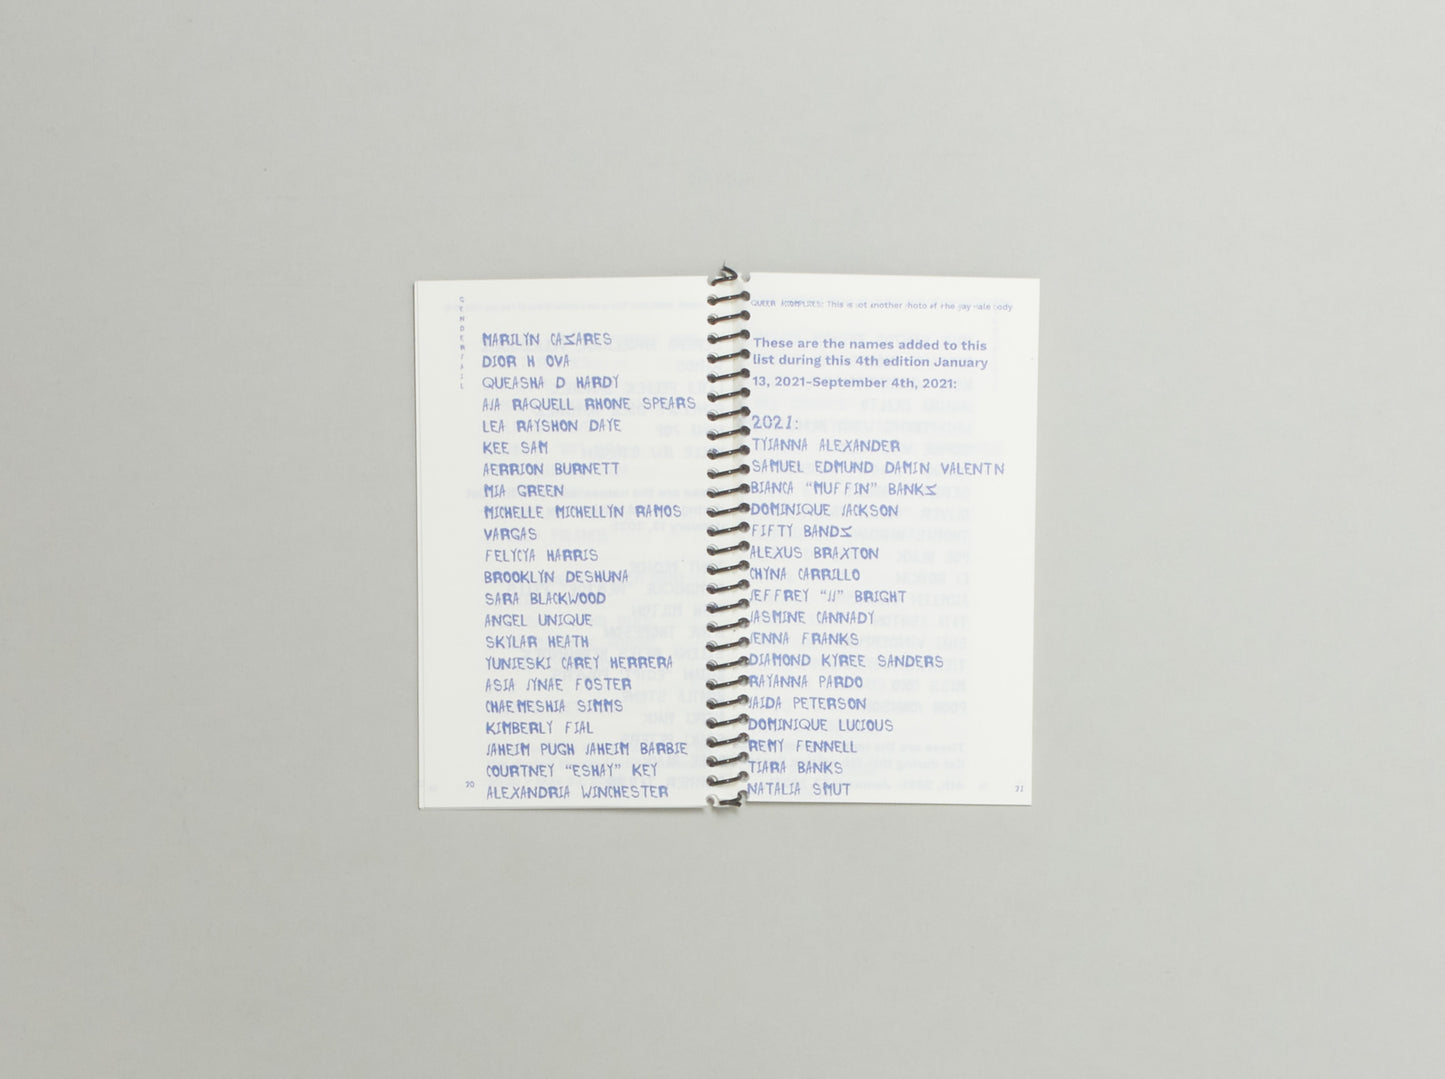 GENDERFAIL
MARILYN CAZARES
DIOR H OVA
QUEASHA D HARDY
AJA RAQUELL RHONE SPEARS
LEA RAYSHON DAYE
KEE SAM
AERRION BURNETT
MIA GREEN
MICHELLE MICHELLYN RAMOS
VARGAS
FELYCYA HARRIS
BROOKLYN DESHUNA
SARA BLACKWOOD
ANGEL UNIQUE
SKYLAR HEATH
YUNIESKI CAREY HERRERA
ASIA JYNAE FOSTER
CHAE'MESHIA SIMMS
KIMBERLY FIAL
JAHEIM PUGH JAHEIM BARBIE
COURTNEY “ESHAY” KEY
ALEXANDRIA WINCHESTER
20
QUEER ACOMPLICES: This is not another photo of the gay male body
These are the names added to this
list during this 4th edition January
13, 2021-September 4th, 2021:
2021:
TYIANNA ALEXANDER
SAMUEL EDMUND DAMIN VALENTN
BIANCA “MUFFIN” BANKZ
DOMINIQUE JACKSON
FIFTY BANDZ
ALEXUS BRAXTON
CHYNA CARRILLO
JEFFREY “JJ” BRIGHT
JASMINE CANNADY
JENNA FRANKS
DIAMOND KYREE SANDERS
RAYANNA PARDO
JAIDA PETERSON
DOMINIQUE LUCIOUS
REMY FENNELL
TIARA BANKS
NATALIA SMUT
21